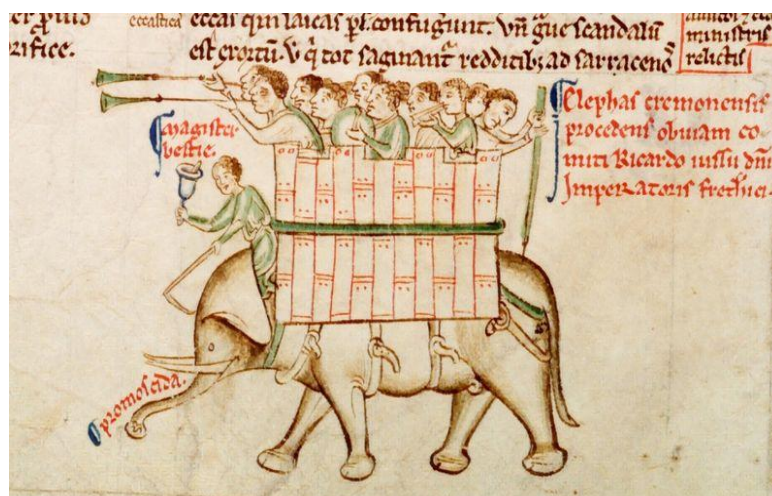 rifice.
confugiunt. Vñ g̃ue scandalũ
est exortũ. tot saginant̃ redditib; ad sarraceno
ministris
relictis
Magister
bestie.
Elephas cremonensis
procedens obuiam co-
miti Ricardo iussu dñi
Imperatoris fretherici.
promoscida.